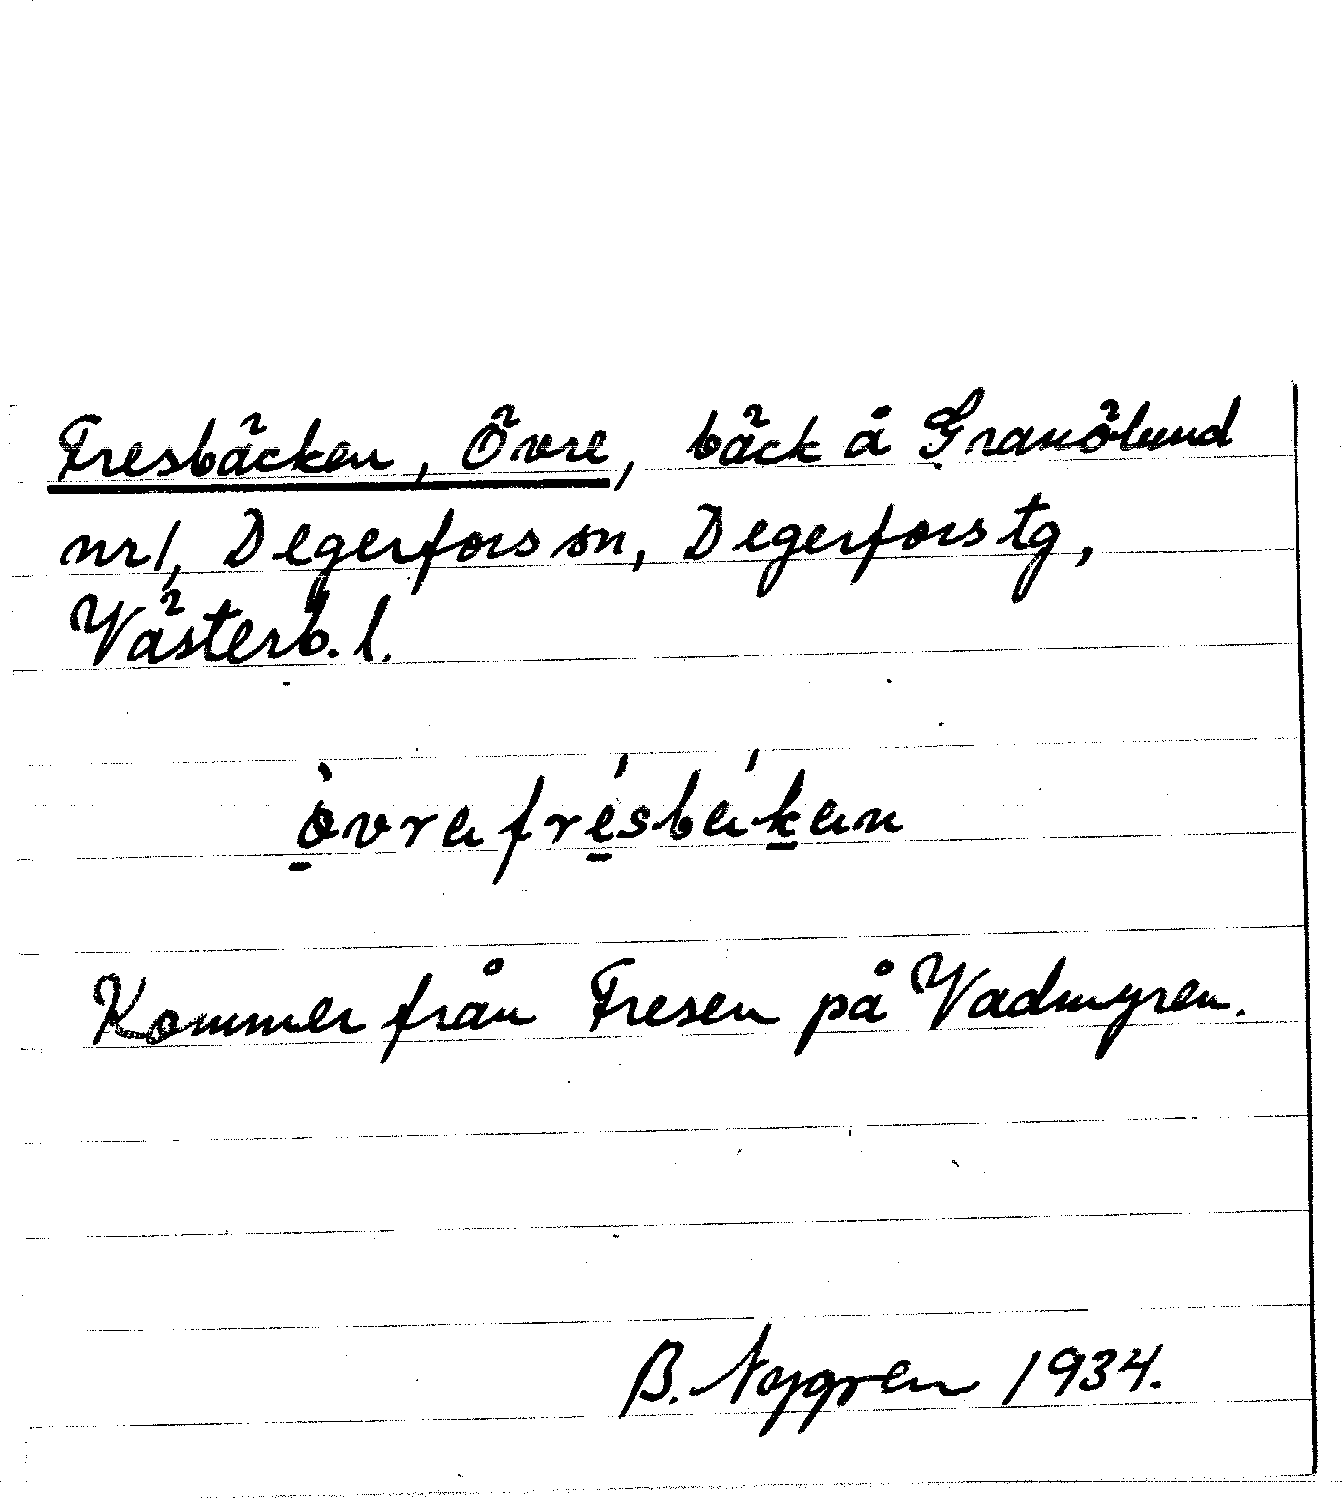 Fresbäcken, Övre, bäck å Granölund
nr 1, Degerfors sn, Degerfors tg,
Västerb. l.
Kommer från Fresen på Vadmyren.
B. Nygren 1934.